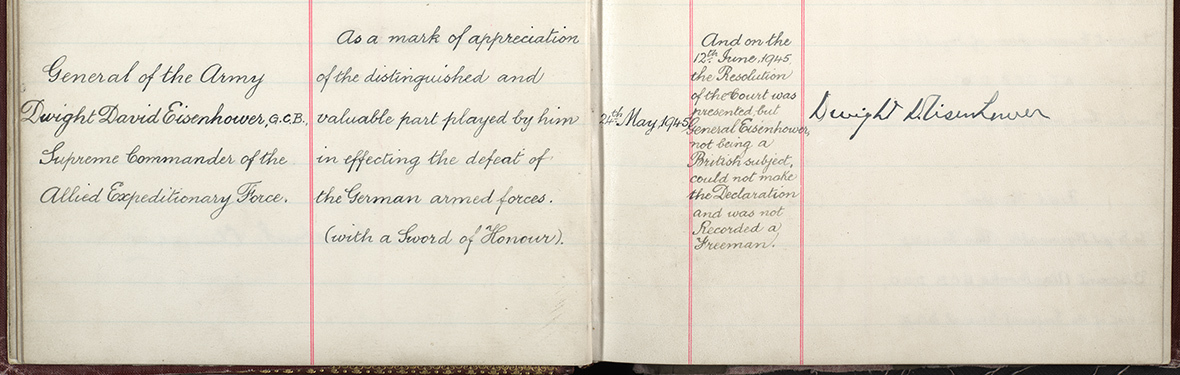 General of the Army
Dwight David Eisenhower, G.C.B.,
Supreme Commander of the
Allied Expeditionary Force.
As a mark of appreciation
of the distinguished and
valuable part played by him
in effecting the defeat of
the German armed forces.
(with a Sword of Honour).
24th May, 1945
And on the
12th June, 1945,
the Resolution
of the Court was
presented, but
General Eisenhower,
not being a
British subject,
could not make
the Declaration
and was not
Recorded a
Freeman.
Dwight D Eisenhower